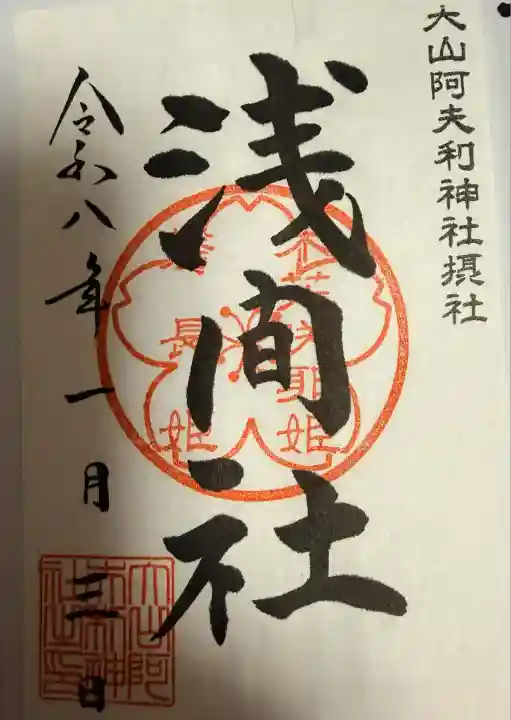 大山阿夫利神社摂社
浅間社
木花咲耶姫
磐長姫
令和八年一月三日
大山阿
夫利神
社之印